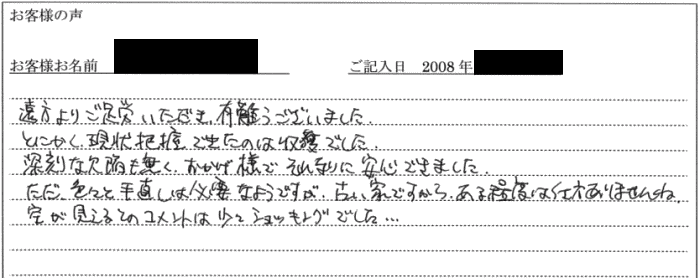 お客様の声
お客様お名前 ご記入日 2008年
遠方よりご足労いただき、有難うございました。
とにかく現状把握できたのは収穫でした。
深刻な欠陥も無く、おかげ様でそれなりに安心できました。
ただ、色々と手直しは必要なようですが、古い家ですから、ある程度は仕方ありませんね。
空が見えるとのコメントは少々ショッキングでした…